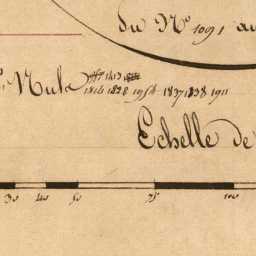 du N° 1091 au
Nula
1814 1828 1954 1837 1838 1911
Echelle de
30 40 50 75 100